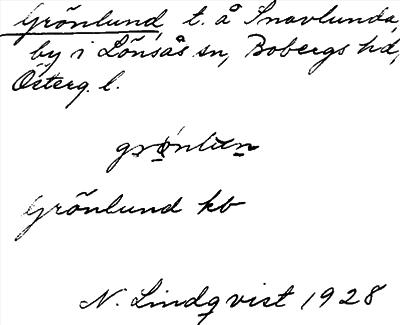 Grönlund, t. å Snavlunda,
by i Lönsås sn, Bobergs hd,
Österg. l.
grönlun
Grönlund kb
N. Lindqvist 1928